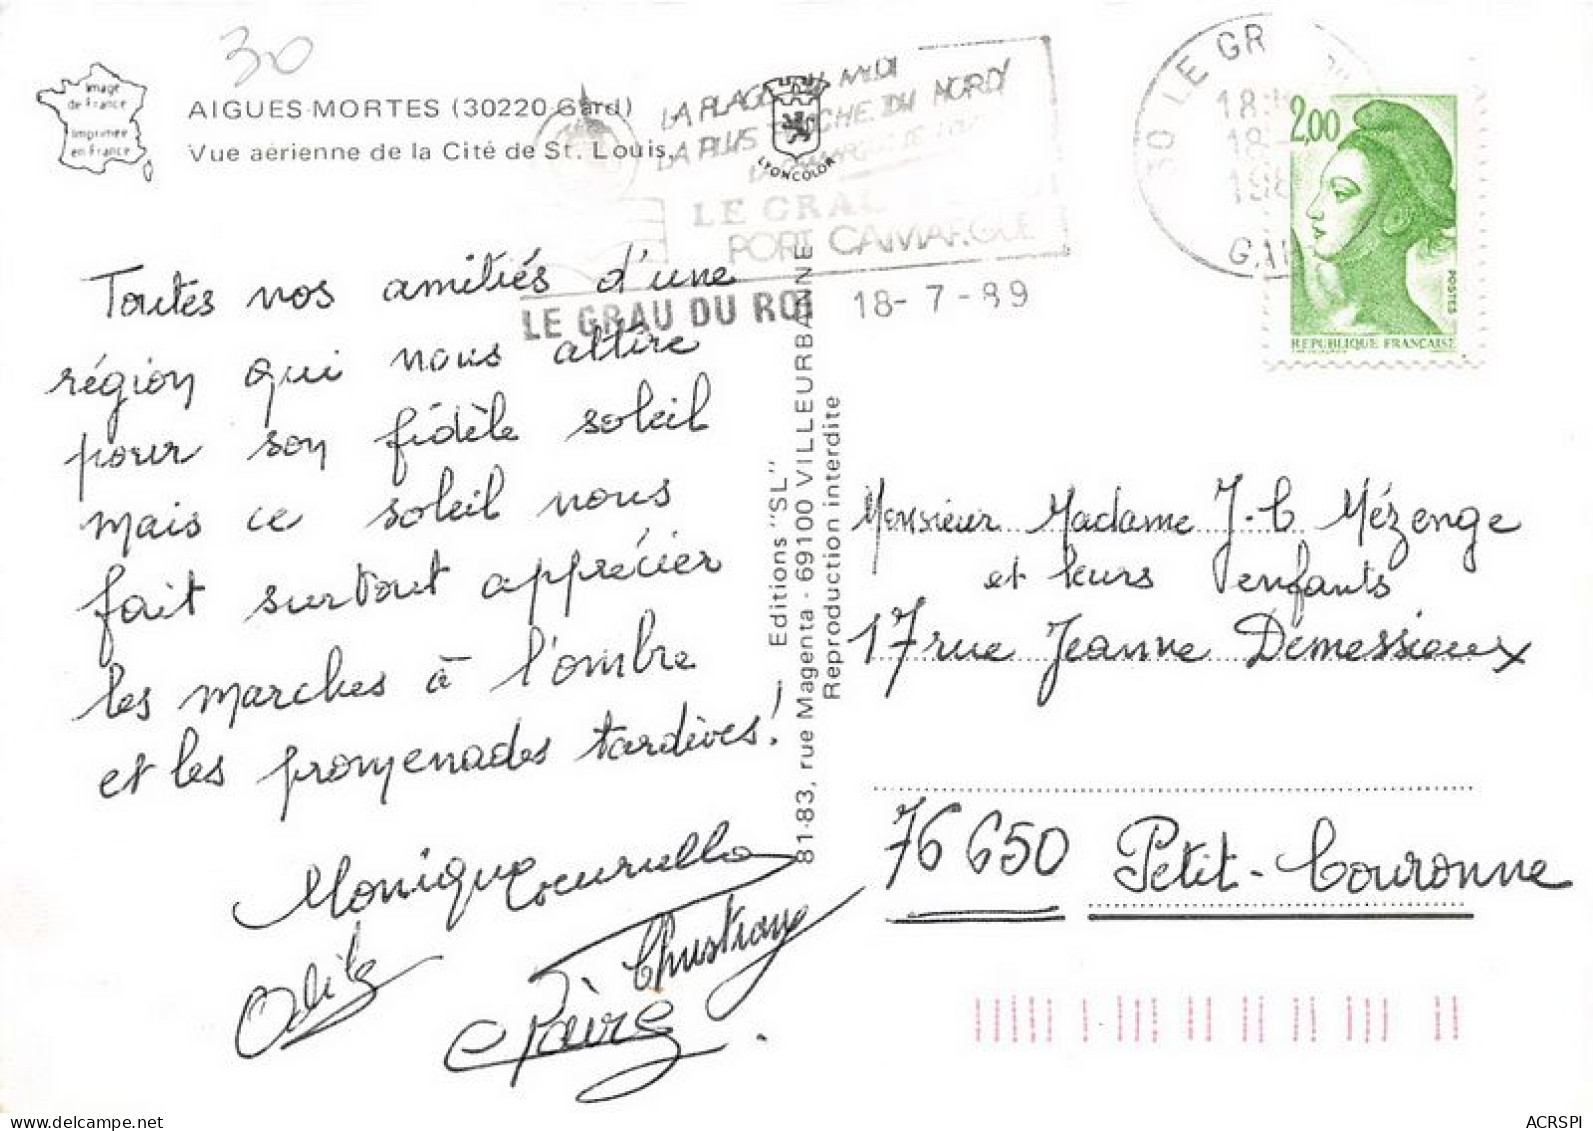 30
Image
de France
Imprimée
en France
AIGUES-MORTES (30220 Gard)
Vue aérienne de la Cité de St. Louis.
LYONCOLOR
LA PLAGE DU MIDI
LA PLUS PROCHE DU NORD
LE GRAU
PORT CAMARGUE
LE GRAU DU ROI 18-7-89
30 LE GR
18
2,00
POSTES
REPUBLIQUE FRANÇAISE
Toutes nos amitiés d'une
région qui nous attire
pour son fidèle soleil
mais ce soleil nous
fait surtout apprécier
les marches à l'ombre
et les promenades tardives!
Monique
Odile
Editions "SL"
81-83, rue Magenta - 69100 VILLEURBANNE
Reproduction interdite
Monsieur Madame J-C Mézenge
et leurs enfants
17 rue Jeanne Demessieux
76650 Petit-Couronne
ACRSPI